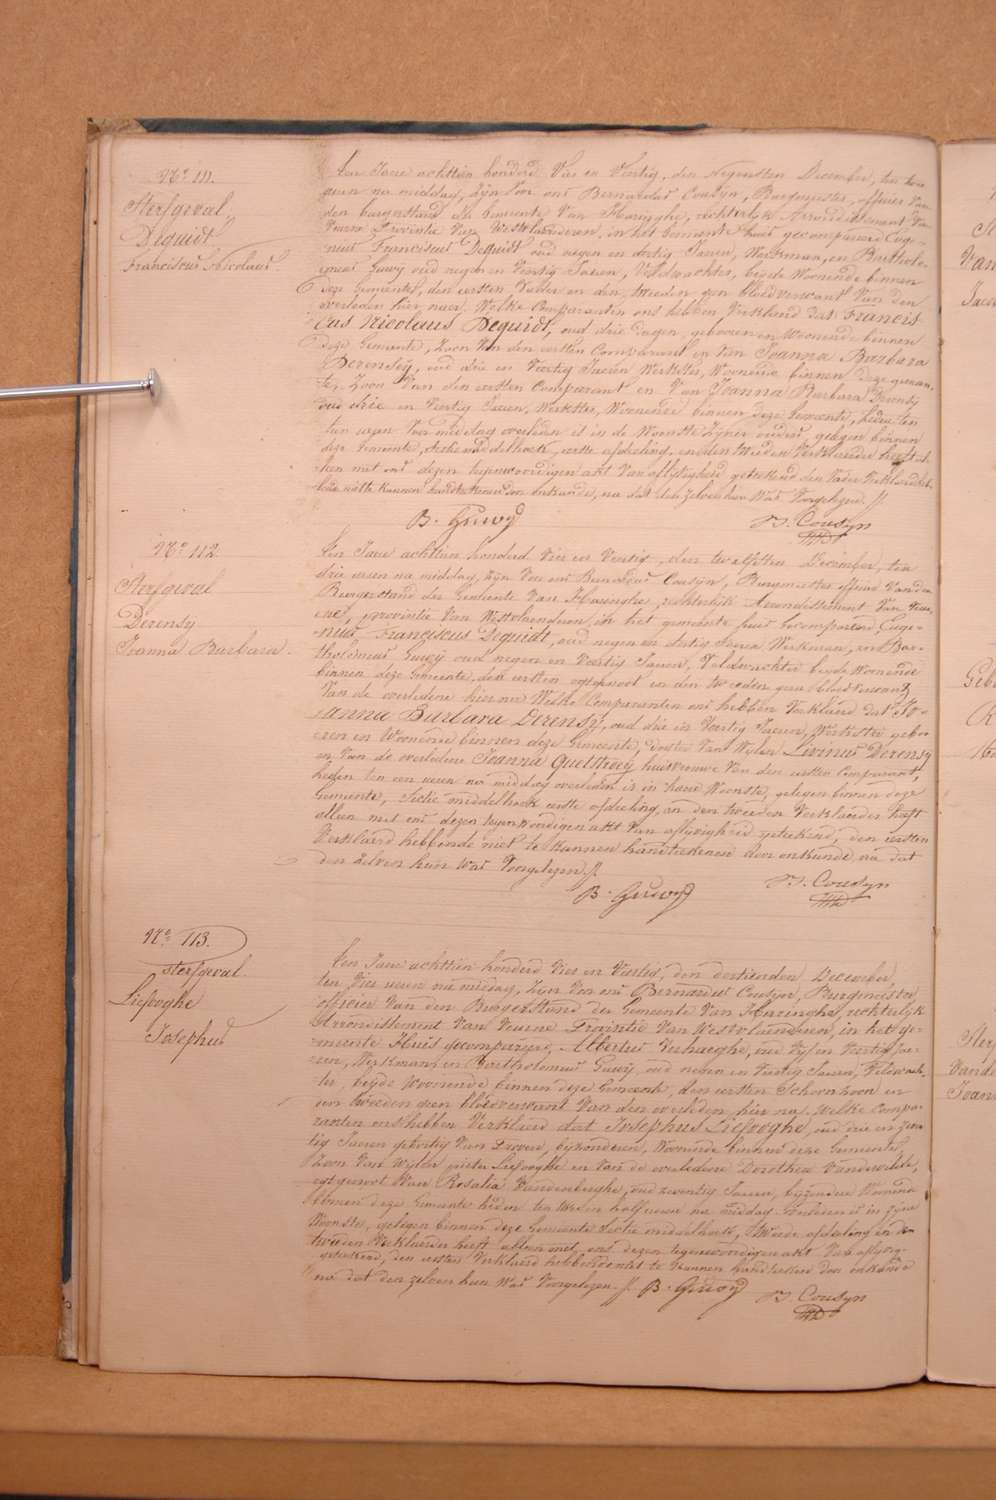 N.º 111.
Sterfgeval
Dequidt
Franciscus Nicolaus
Den Jaere achttien honderd Vier en Veertig, den negensten December, ten twee
uren na middag, zyn Voor ons Bernardus Cousyn, Burgmeester, officier Van
den burgerstand der gemeente Van Haringhe, rechterlyk Arrondissement Van
Veurne Provintie Van Westvlaenderen, in het gemeente huis gecompareerd Euge-
nius Franciscus Dequidt oud negen en dertig Jaeren, Werkman, en Bartholo-
meus Guwy oud negen en Veertig Jaeren, Veldwachter, beyde Woonende binnen
deze Gemeente, den eersten Vader en den tweeden geen bloedverwant Van den
overleden hier naer. Welke Comparanten ons hebben Verklaerd dat Francis
Cus Nicolaus Dequidt, oud drie dagen, geboren en Woonende binnen
deze Gemeente, Zoon Van den eersten Comparant en Van Joanna Barbara
Derensy, oud drie en Veertig Jaeren Werkster, Woonende binnen deze gemeen-
te, Zoon Van den eersten Comparant en Van Joanna Barbara Derensy
oud drie en Veertig Jaeren, Werkster, Woonende binnen deze Gemeente, heden ten
tien uren Voor middag overleden is in de Woonste Zyner ouders, gelegen binnen
deze Gemeente, Sectie middelhoek, eerste afdeeling, en den tweeden Verklaerder heeft al-
leen met ons dezen tegenwoordigen akt Van aflyvigheid geteekend, den Vader Verklaerd heb-
bende niet te kunnen handteekenen door onkunde, na dat den zelven hun Was Voorgelezen. //.
B. Guwy
B. Cousyn
N.º 112
Sterfgeval
Derensy
Joanna Barbara.
Den Jaere achttien honderd Vier en Veertig, den twaelfsten December, ten
drie uren na middag, zyn Voor ons Bernardus Cousyn, Burgmeester officier Van den
Burgerstand der Gemeente Van Haringhe, rechterlyk Arrondissement Van Veur-
ne, provintie Van Westvlaenderen, in het gemeente huis Gecompareerd, Euge-
nius Franciscus Dequidt, oud negen en dertig Jaeren Werkman, en Bar-
tholomeus Guwy oud negen en Veertig Jaeren, Veldwachter beyde Woonende
binnen deze Gemeente, den eersten egtgenoot en den tweeden geen bloedverwant
Van de overledene hier na Welke Comparanten ons hebben Verklaerd dat Jo-
anna Barbara Derensy, oud drie en Veertig Jaeren, Werkster gebo-
ren en Woonende binnen deze Gemeente, Dogter Van Wylen Livinus Derensy
en Van de overledene Joanna huisvrouwe Van den eersten Comparant,
heden ten een uren na middag overleden is in haere Woonste, gelegen binnen deze
Gemeente, Sectie middelhoek eerste afdeeling, en den tweeden Verklaerder heeft
alleen met ons dezen tegenwoordigen akt Van aflyvigheid geteekend, den eersten
Verklaerd hebbende niet te kunnen handteekenen door onkunde na dat
den zelven hun Was Voorgelezen. //.
B. Guwy
B. Cousyn
N.º 113.
Sterfgeval
Liefooghe
Josephus
Den Jaere achttien honderd Vier en Veertig, den dertienden December
ten Vier uren na middag, Zyn Voor ons Bernardus Cousyn, Burgmeester,
officier Van den Burgerstand der Gemeente Van Haringhe, rechterlyk
Arrondissement Van Veurne Provintie Van Westvlaenderen, in het ge-
meente Huis gecompareerd, Albertus Verhaeghe, oud Vyf en Veertig Jae-
ren, Werkman en Bartholomeus Guwy, oud negen en Veertig Jaeren, Veldwach-
ter, beyde Woonende binnen deze Gemeente, den eersten Schoonzoon en
den tweeden geen bloedverwant Van den overleden hier na, Welke Compa-
ranten ons hebben Verklaerd dat Josephus Liefooghe, oud drie en
tig Jaeren geboortig Van Proven, byzonderen, Woonende binnen deze Gemeente,
Zoon Van Wylen pieter Liefooghe en Van de overledene Dorothea
egtgenoot Van Rosalia Vandenberghe, oud zeventig Jaeren, byzondere Woonende
binnen deze Gemeente heden ten half uren na middag overleden is in zyne
Woonste, gelegen binnen deze Gemeente Sectie middelhoek, tweede afdeeling en den
tweeden Verklaerder heeft alleen met ons dezen tegenwoordigen akt Van aflyvig-
geteekend, den eersten Verklaerd hebbende niet te kunnen handteekenen door onkunde
na dat den zelven hun Was Voorgelezen. //. B. Guwy
B. Cousyn
Van
Jaco
Geb
Sterf
Vande
Joan